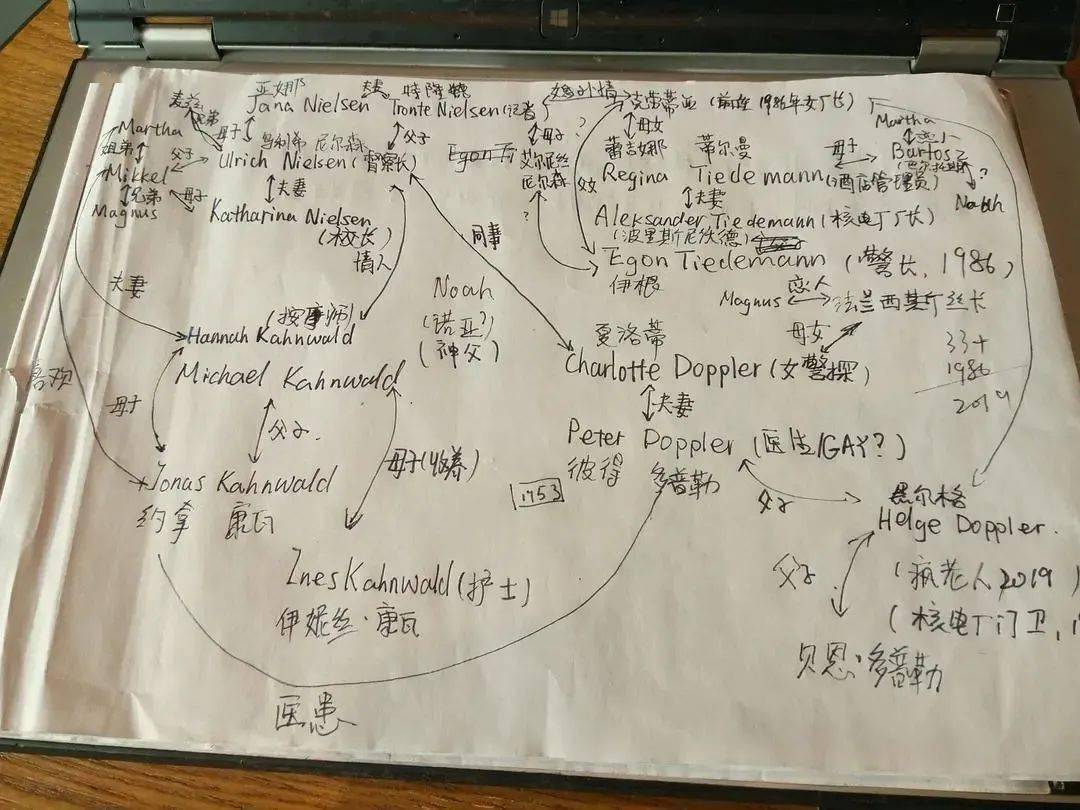 亚娜 夫妻 特隆德 婚外情 克劳蒂亚 (前任 1986年女厂长)
Jana Nielsen Tronte Nielsen (记者)
Martha 兄弟 母子 父子 母子? 母女 Martha
姐弟 父子 乌利希 尼尔森 Egon Ti 艾尔尼丝 蕾吉娜 蒂尔曼 母子 恋人
Mikkel Ulrich Nielsen (警察长) 尼尔森 Regina Tiedemann (酒店管理员) Bartosz
兄弟 母子 夫妻 ? 父女 夫妻 ?
Magnus Katharina Nielsen Aleksander Tiedemann (核电厂厂长) Noah
(校长) (波里斯尼沃德)
情人 同事 Egon Tiedemann (警长, 1986)
夫妻 Noah 伊根 恋人
(诺亚?) Magnus 法兰西斯丝长
(按摩师) (神父) 夏洛蒂 母女 33+
Hannah Kahnwald 1986
喜欢 Michael Kahnwald Charlotte Doppler (女警探) 2019
母子 夫妻
父子. Peter Doppler (医生/GAY?)
母子(收养) 彼得 多普勒
Jonas Kahnwald 1953 父子 黑尔格
约拿 康瓦 Helge Doppler.
Ines Kahnwald (护士) 父子 (疯老人2019)
伊妮丝·康瓦 (核电厂门卫,
贝恩·多普勒
医患